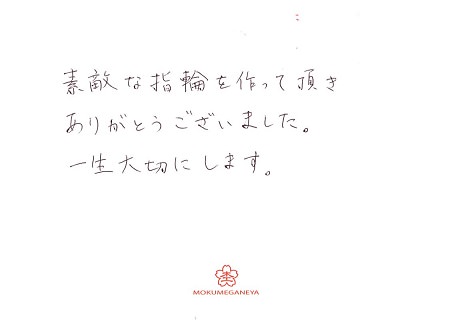 素敵な指輪を作って頂き
ありがとうございました。
一生大切にします。
MOKUMEGANEYA